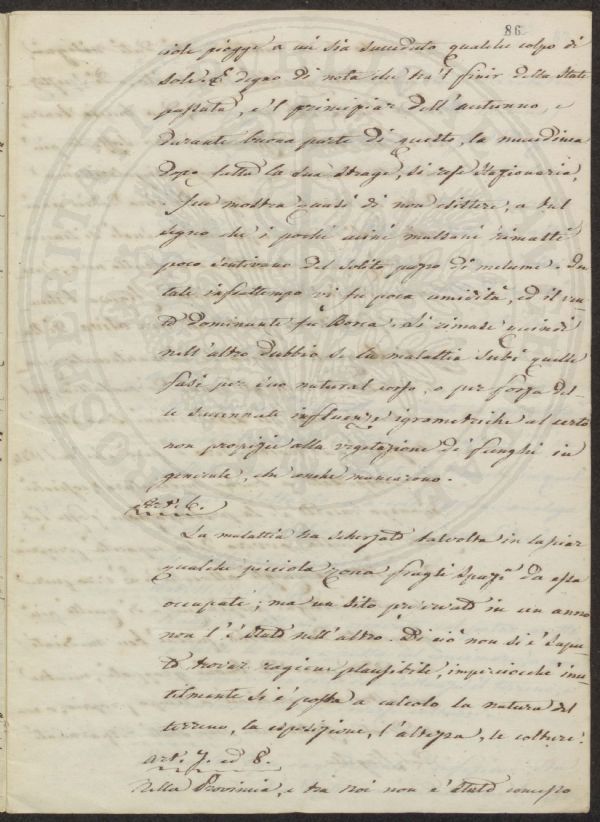 86
ciole piogge a cui sia succeduto qualche colpo di
sole. È degno di nota che tra 'l finir della State
passata, e 'l principiar dell'autunno, e
durante buona parte di questo, la mucedinea
dopo tutta la sua strage, si rese stazionaria,
fece mostra quasi di non esistere, a tal
segno che i pochi acini malsani rimasti
poco sentivano del solito puzzo di melume. In
tale infrattempo vi fu poca umidità, ed il ven-
to dominante fu Borea. Si rimase quindi
nell'altro dubbio se la malattia subì quelle
fasi per suo natural corso, o per forza del-
le succennate influenze igrometriche al certo
non propizie alla vegetazione di funghi in
generale, che anche mancarono.
Art. 6.
La malattia ha scherzato talvolta in lasciar
qualche picciola zona fragli spazi da essa
occupati; ma un sito privato in un anno
non l'è stato nell'altro. Di ciò non si è sapu-
to trovar ragione plausibile, imperciocchè inu-
tilmente si è posta a calcolo la natura del
terreno, la esposizione, l'altezza, le colture.
Art. 7. ed 8.
Nella Provincia, e tra noi non è stato concesso